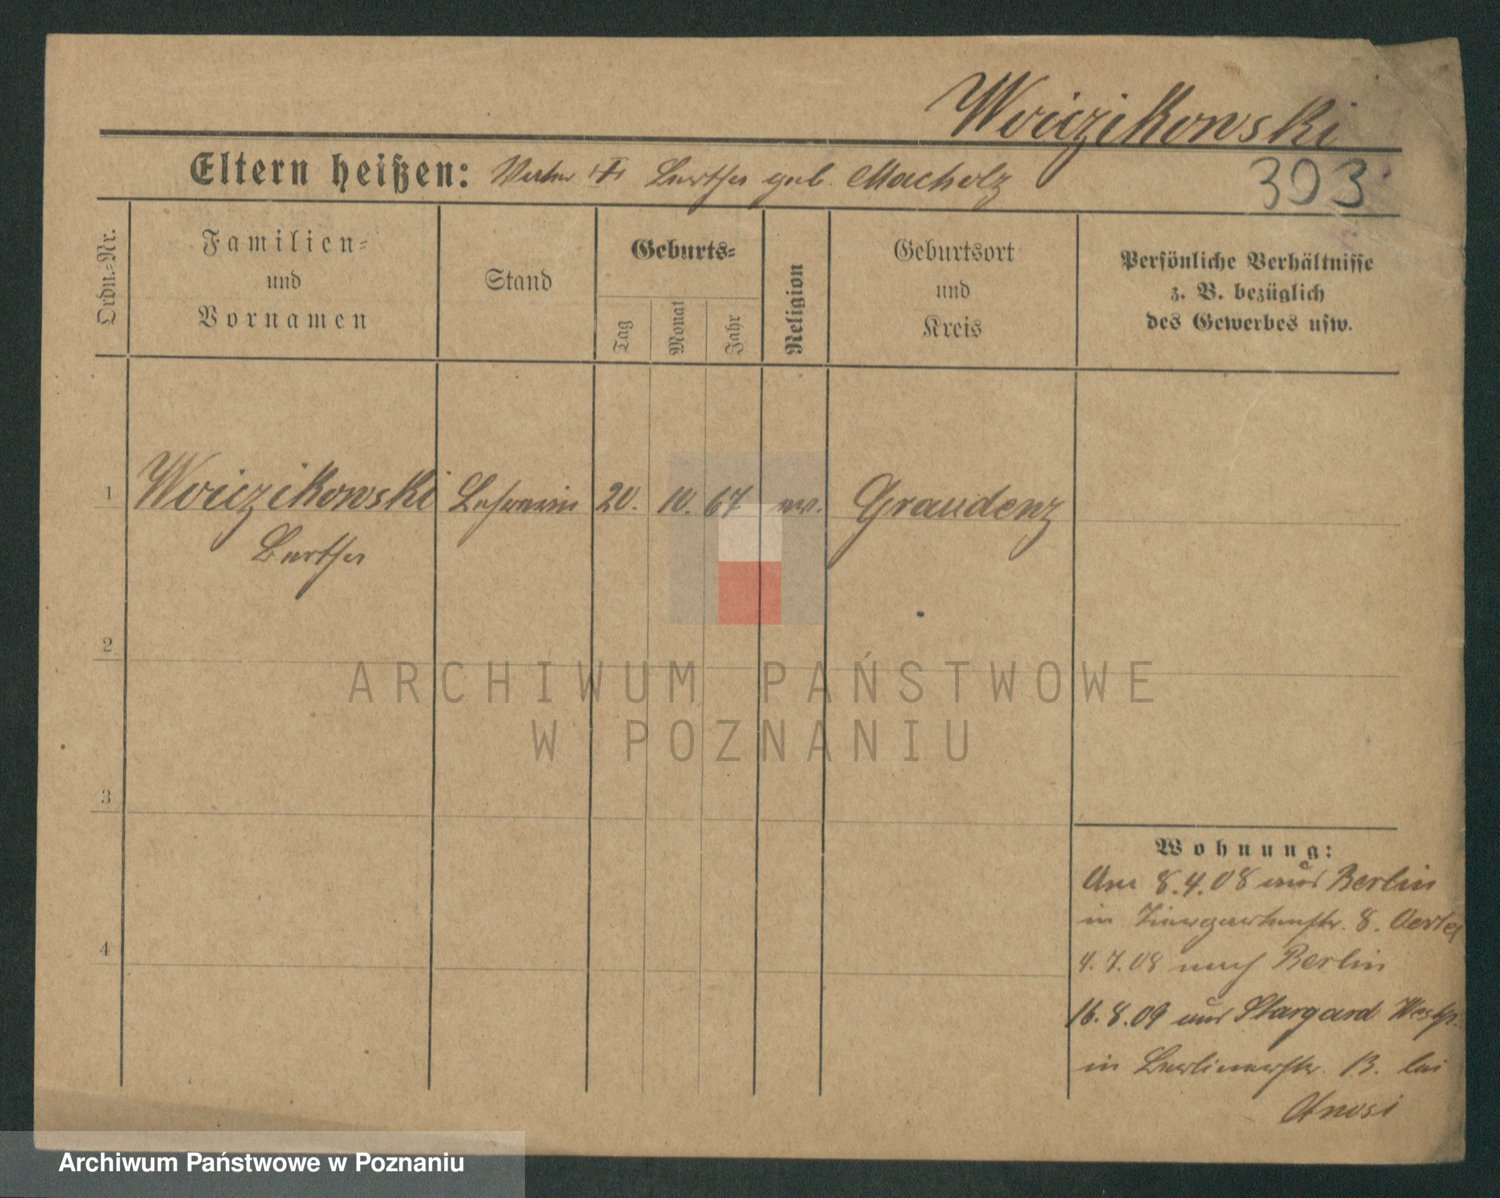 Woiczikowski
Eltern heißen: Vater † Bertha geb. Macholz
393
Ordn.-Nr.
Familien-
und
Vornamen
Stand
Geburts-
Tag
Monat
Jahr
Religion
Geburtsort
und
Kreis
Persönliche Verhältnisse
z. B. bezüglich
des Gewerbes usw.
1 Woiczikowski Lehrerin 20. 10. 67 ev. Graudenz
Bertha
2
ARCHIWUM PAŃSTWOWE
W POZNANIU
3
4
Wohnung:
Am 8.4.08 aus Berlin
in 8.
4.7.08 nach Berlin
16.8.09 aus Stargard Westp.
in Berlinerstr. 13. bei
Archiwum Państwowe w Poznaniu